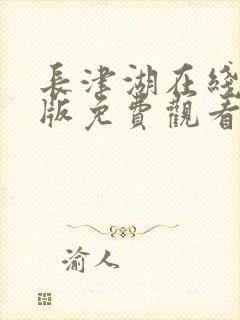 長津湖在綫
版免費觀看
渝人